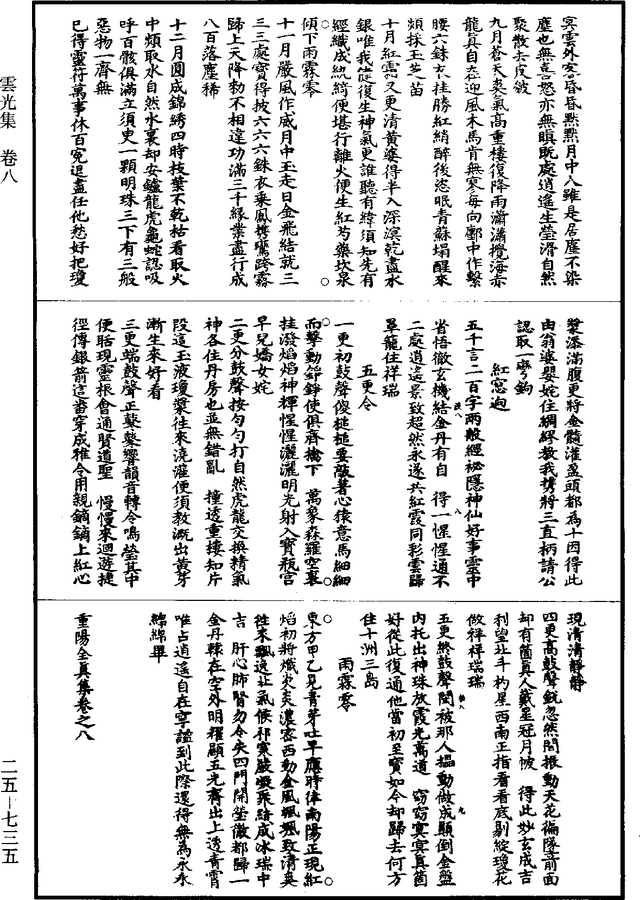 冥雲外客昏昏默默月中人雖是居塵不染
塵也無喜怒亦無瞋旣處逍遙生瑩滑自然
聚散去皮皴
九月蒼天爽氣高重樓復降雨瀟瀟攪海赤
龍真自在迎風木馬肯無寒每向酆中作繫
腰六銖衣挂勝紅綃醉後恣眠青蘇塌醒來
頻採玉芝苗
十月紅霞又更清黃婆得半入深淵乾盡水
銀唯我健復生神氣更誰聽有緯須知先有
經織成綐綃便堪行離火便生紅芍藥坎泉
傾下雨霖零
十一月嚴風作威月中玉走日金飛結就三
三三處寶得披六六六銖衣乘鳳携鸞跨霧
歸上天降勑不相違功滿三千緣業盡行成
八百落塵稀
十二月圓成錦綉四時枝葉不乾枯看取火
中頻取水自然水裏却安鑪龍虎龜蛇認吸
呼百骸俱滿立須更一顆明珠三下有三般
惡物一齊無
已得靈符萬事休百寃退盡任他愁好把瓊
漿添滿腹更將金髓灌盈頭都為十因得此
由翁婆嬰姹住綢繆教我携將三直柄請公
認取一彎鉤
紅窓迥
五千言二百字兩般經祕隱神仙好事靈中
省悟徹玄機結金丹有自 得一惺惺通不
二處逍遙景致超然永遂共紅霞同彩雲歸
罩籠住祥瑞
五更令
一更初鼓聲傻槌槌要敲著心猿意馬細細
而擊動錚錚使俱齊擒下 萬象森羅空裏
挂潑焰焰神輝惺惺灑灑明光射入寶瓶宮
早兒嬌女姹
二更分鼓聲按勻勻打自然虎龍交換精氣
神各住丹房也並無錯亂 撞透重樓知片
段這玉液瓊漿往來澆灌便須教溉出黃芽
漸生來好看
三更端鼓聲正鼕鼕響韻音轉令鳴瑩其中
便聒現靈根會通賢道聖 慢慢來迴遊捷
徑傳銀箭這畨穿成雅令用親鏑鏑上紅心
現清清靜靜
四更高鼓聲銳忽然間推動天花徧隊前面
却有箇真人戴星冠月帔 得此妙玄成吉
利望北斗杓星西南正指看看底剔綻瓊花
做祥祥瑞瑞
五更終鼓聲閙被那人攂動做成顛倒金盤
內托出神珠放霞光萬道 窈窈冥冥真箇
好從此復通他當初至寶如今却歸去何方
住十洲三島
雨霖零
東方甲乙見青芽吐早應時律南陽正現紅
焰初將熾炎炎濃密西動金風颯颯致清爽
往來飄逸北氣候祁寒嚴凝聚結成冰瑞中
吉 肝心肺腎勿令失四門開瑩徹都歸一
金丹輥在空外明耀顯五光齊出上透青霄
唯占逍遥自在寧謐到此際還得無為永永
綿綿畢
重陽全真集卷之八
雲光集 卷八
二五-七三五